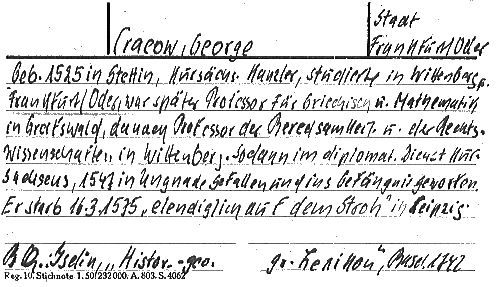 Stadt
Cracow, George
Frankfurt/Oder
Geb. 1525 in Stettin, Kursächs. Kanzler, studierte in Wittenberg u.
Frankfurt/Oder, war später Professor für Griechisch u. Mathematik
in Greifswald, danach Professor der Beredsamkeit u. der Rechts-
Wissenschaften in Wittenberg. Sodann im diplomat. Dienst Kur-
sachsens, 1547 in Ungnade gefallen und ins Gefängnis geworfen.
Er starb 16.3.1575 „elendiglich auf dem Stroh" in Leipzig.
B Q. Iselin, „Histor.-geo.
gr. Lexikon", Basel 1742
Reg. 10. Stichnote 1. 50/232000. A. 803. S. 4062